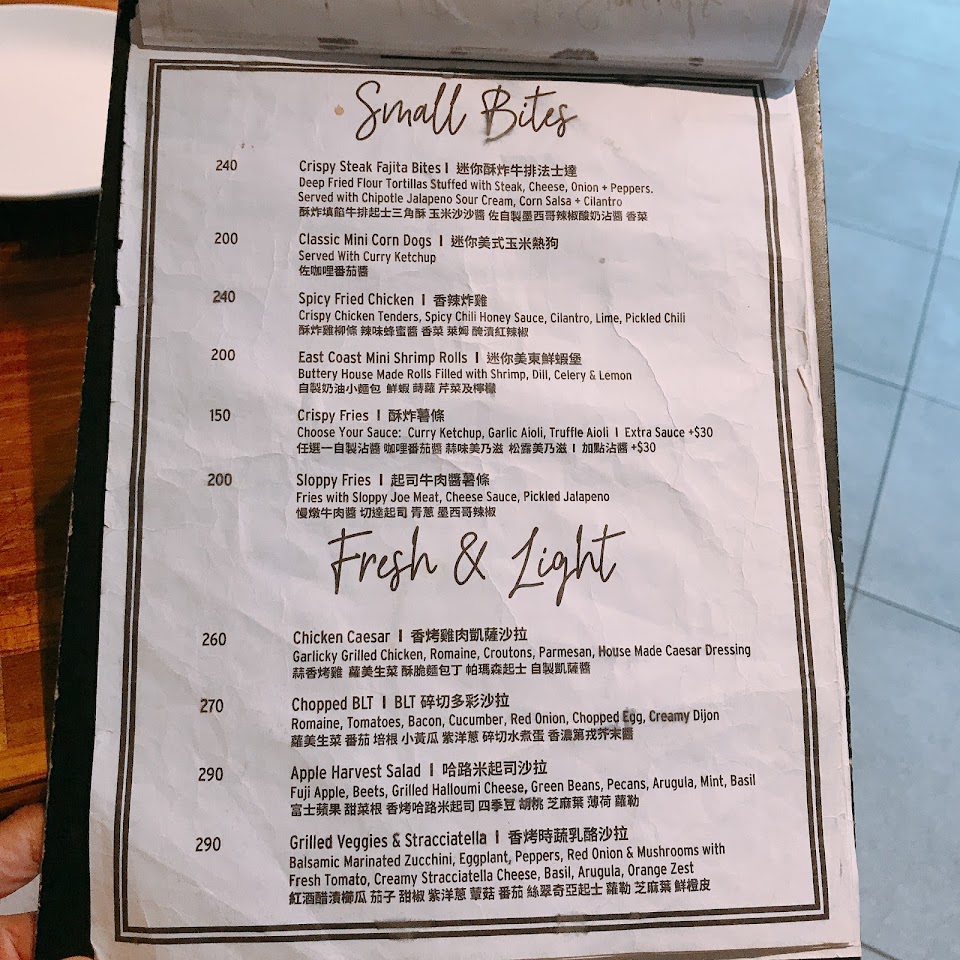 Small Bites
240 Crispy Steak Fajita Bites | 迷你酥炸牛排法士達
Deep Fried Flour Tortillas Stuffed with Steak, Cheese, Onion + Peppers.
Served with Chipotle Jalapeno Sour Cream, Corn Salsa + Cilantro
酥炸填餡牛排起士三角酥 玉米沙沙醬 佐自製墨西哥辣椒酸奶沾醬 香菜
200 Classic Mini Corn Dogs | 迷你美式玉米熱狗
Served With Curry Ketchup
佐咖哩番茄醬
240 Spicy Fried Chicken | 香辣炸雞
Crispy Chicken Tenders, Spicy Chili Honey Sauce, Cilantro, Lime, Pickled Chili
酥炸雞柳條 辣味蜂蜜醬 香菜 萊姆 醃漬紅辣椒
200 East Coast Mini Shrimp Rolls | 迷你美東鮮蝦堡
Buttery House Made Rolls Filled with Shrimp, Dill, Celery & Lemon
自製奶油小麵包 鮮蝦 蒔蘿 芹菜及檸檬
150 Crispy Fries | 酥炸薯條
Choose Your Sauce: Curry Ketchup, Garlic Aioli, Truffle Aioli | Extra Sauce +$30
任選一自製沾醬 咖哩番茄醬 蒜味美乃滋 松露美乃滋 | 加點沾醬 +$30
200 Sloppy Fries | 起司牛肉醬薯條
Fries with Sloppy Joe Meat, Cheese Sauce, Pickled Jalapeno
慢燉牛肉醬 切達起司 青蔥 墨西哥辣椒
Fresh & Light
260 Chicken Caesar | 香烤雞肉凱薩沙拉
Garlicky Grilled Chicken, Romaine, Croutons, Parmesan, House Made Caesar Dressing
蒜香烤雞 蘿美生菜 酥脆麵包丁 帕瑪森起士 自製凱薩醬
270 Chopped BLT | BLT 碎切多彩沙拉
Romaine, Tomatoes, Bacon, Cucumber, Red Onion, Chopped Egg, Creamy Dijon
蘿美生菜 番茄 培根 小黃瓜 紫洋蔥 碎切水煮蛋 香濃第戎芥末醬
290 Apple Harvest Salad | 哈路米起司沙拉
Fuji Apple, Beets, Grilled Halloumi Cheese, Green Beans, Pecans, Arugula, Mint, Basil
富士蘋果 甜菜根 香烤哈路米起司 四季豆 胡桃 芝麻葉 薄荷 蘿勒
290 Grilled Veggies & Stracciatella | 香烤時蔬乳酪沙拉
Balsamic Marinated Zucchini, Eggplant, Peppers, Red Onion & Mushrooms with
Fresh Tomato, Creamy Stracciatella Cheese, Basil, Arugula, Orange Zest
紅酒醋漬櫛瓜 茄子 甜椒 紫洋蔥 蕈菇 番茄 絲翠奇亞起士 蘿勒 芝麻葉 鮮橙皮